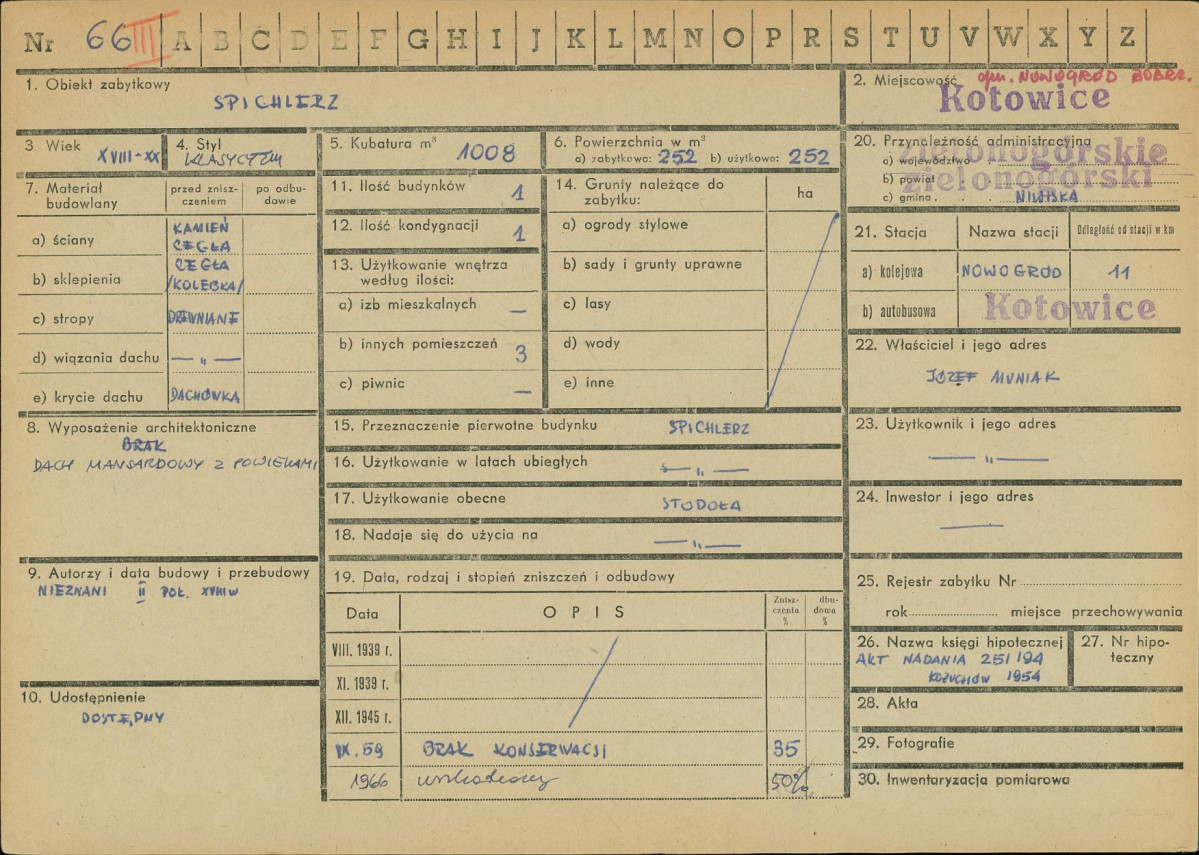 Nr 66 III A B C D E F G H I J K L M N O P R S T U V W X Y Z
1. Obiekt zabytkowy
SPICHLERZ
2. Miejscowość gm. NOWOGRÓD BOBRZ.
Kotowice
3 Wiek
XVIII-XX
4. Styl
KLASYCYZM
5. Kubatura m³ 1008
6. Powierzchnia w m²
a) zabytkowa: 252 b) użytkowa: 252
20. Przynależność administracyjna
a) województwo zielonogórskie
b) powiat zielonogórski
c) gmina NIWISKA
7. Materiał budowlany
przed zniszczeniem
po odbudowie
a) ściany KAMIEŃ CEGŁA
b) sklepienia CEGŁA /KOLEBKA/
c) stropy DREWNIANE
d) wiązania dachu — " —
e) krycie dachu DACHÓWKA
11. Ilość budynków 1
12. Ilość kondygnacji 1
13. Użytkowanie wnętrza
według ilości:
a) izb mieszkalnych —
b) innych pomieszczeń 3
c) piwnic —
14. Grunty należące do
zabytku:
ha
a) ogrody stylowe
b) sady i grunty uprawne
c) lasy
d) wody
e) inne
21. Stacja Nazwa stacji Odległość od stacji w km
a) kolejowa NOWOGRÓD 11
b) autobusowa Kotowice
22. Właściciel i jego adres
JÓZEF MUNIAK
8. Wyposażenie architektoniczne
BRAK
DACH MANSARDOWY Z POWIEKAMI
15. Przeznaczenie pierwotne budynku SPICHLERZ
16. Użytkowanie w latach ubiegłych — " —
17. Użytkowanie obecne STODOŁA
18. Nadaje się do użycia na — " —
23. Użytkownik i jego adres
— " —
24. Inwestor i jego adres
—
9. Autorzy i data budowy i przebudowy
NIEZNANI II POŁ. XVIII W
10. Udostępnienie
DOSTĘPNY
19. Data, rodzaj i stopień zniszczeń i odbudowy
Data OPIS Zniszczenia % dbudowa %
VIII. 1939 r.
XI. 1939 r.
XII. 1945 r.
IX. 59 BRAK KONSERWACJI 35
1966 50%
25. Rejestr zabytku Nr
rok miejsce przechowywania
26. Nazwa księgi hipotecznej
AKT NADANIA 251/194
KOŻUCHÓW 1954
27. Nr hipoteczny
28. Akta
29. Fotografie
30. Inwentaryzacja pomiarowa